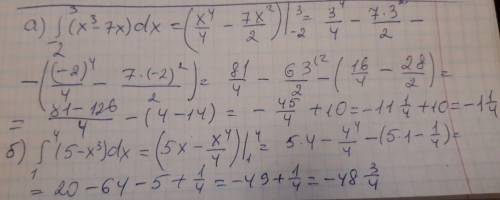 а) ∫₋₂³ (x³ - 7x)dx = (x⁴/4 - 7x²/2) |₋₂³ = 3⁴/4 - 7·3²/2 -
- ((-2)⁴/4 - 7·(-2)²/2) = 81/4 - 63⁽²/2 - (16/4 - 28/2) =
= 81-126/4 - (4-14) = - 45/4 + 10 = -11 1/4 + 10 = -1 1/4
б) ∫₁⁴ (5-x³)dx = (5x - x⁴/4) |₁⁴ = 5·4 - 4⁴/4 - (5·1 - 1/4) =
= 20 - 64 - 5 + 1/4 = -49 + 1/4 = -48 3/4